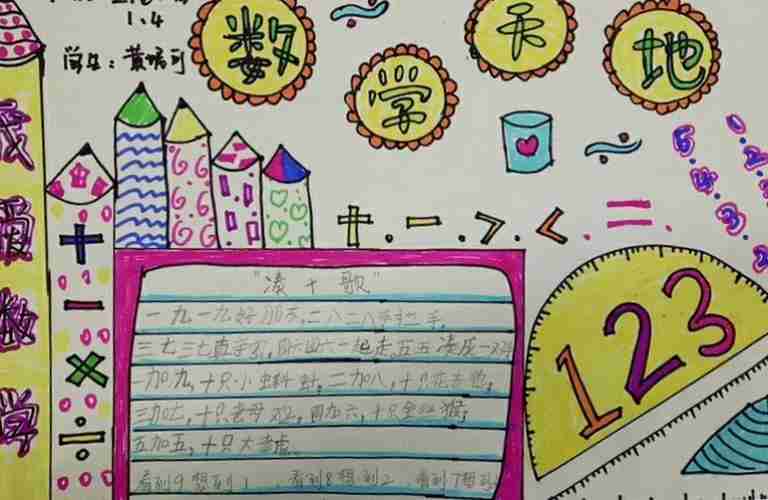 1.4
学生:黄
数学天地
我爱数学
+ - × ÷
+ . - . > . < . =
1 2 3
"凑十歌"
一九一九好朋友,二八二八手拉手,
三七三七真亲密,四六四六一起走,五五凑成一双手
一加九,十只小蝌蚪,二加八,十只花老鸭,
三加七,十只老母鸡,四加六,十只金丝猴,
五加五,十只大老虎。
看到9想到1,看到8想到2,看到7想到